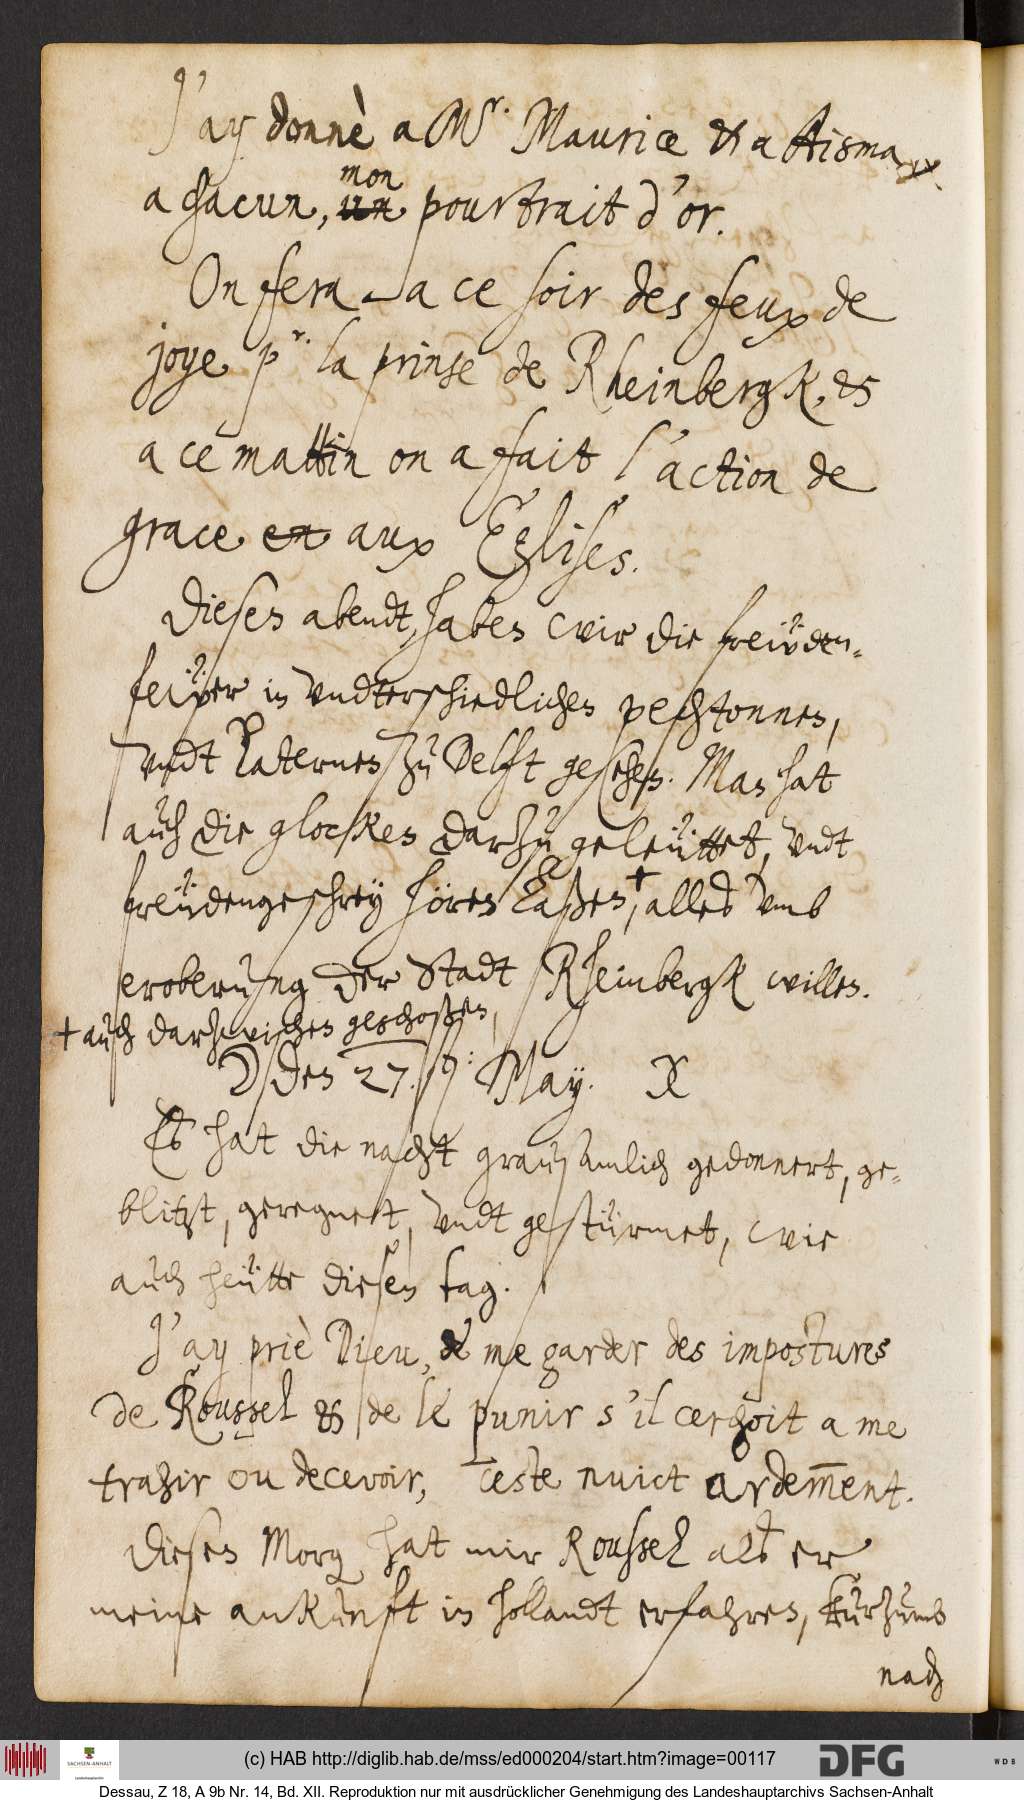 J'ay donnè a Mr. Maurice & a Aisma
a chacun, mon pourtrait d'or.
On fera a ce soir des feux de
joye pr. la prinse de Rheinbergk, &
a ce mattin on a fait l'action de
grace en aux Eglises.
Diesen abendt, haben wir die freẅden-
feẅer in vndterschiedlichen pechtonnen,
vndt Laternen zu Delft gesehen. Man hat
auch die glocken darzu geleüttet, vndt
freüdengeschrey hören laßen, + alles vmb
eroberung der Stadt Rheinbergk willen.
+ auch darzwischen geschoßen,
☽ den 27. / 17: May. X
Es hat die nacht grausamlich gedonnert, ge-
blitzt, geregnett, vndt gestürmet, wie
auch heütte diesen tag.
J'ay priè Dieu, de me garder des impostures
de Roussel & de le punir s'il cerchoit a me
trahir ou decevoir, ceste nuict ardem̅ent.
Diesen Morg hat mir Roussel als er
meine ankunft in hollandt erfahren, kurzumb
nach
(c) HAB http://diglib.hab.de/mss/ed000204/start.htm?image=00117
SACHSEN-ANHALT
DFG
WDB
Dessau, Z 18, A 9b Nr. 14, Bd. XII. Reproduktion nur mit ausdrücklicher Genehmigung des Landeshauptarchivs Sachsen-Anhalt